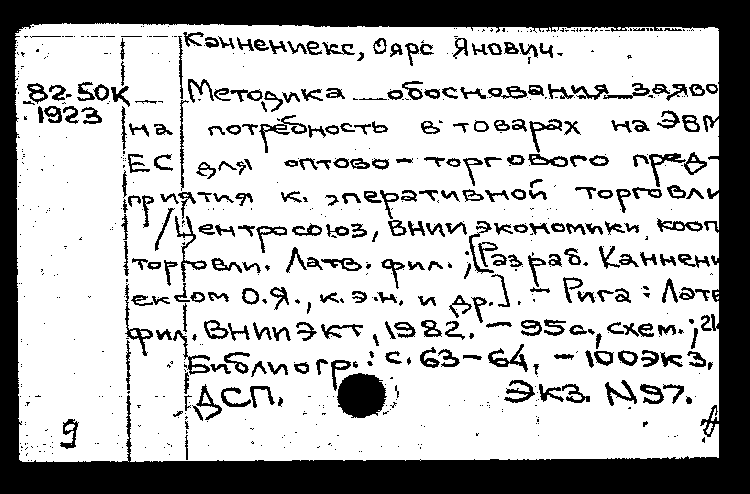 Каннениекс, Оярс Янович.
82-50К
1923
Методика обоснования заяво
на потребность в товарах на ЭВМ
ЕС для оптово-торгового пред-
приятия к. эперативной торговли
/Центросоюз, ВНИИ экономики кооп
торговли. Латв. фил.; [Разраб. КанненИ
ексом О.Я., к.э.н. и др.]. - Рига: Латв
фил. ВНИИЭКТ, 1982. - 95с., схем.; 21
Библиогр.: с. 63-64. - 100экз.
ДСП. Экз. N97.
9